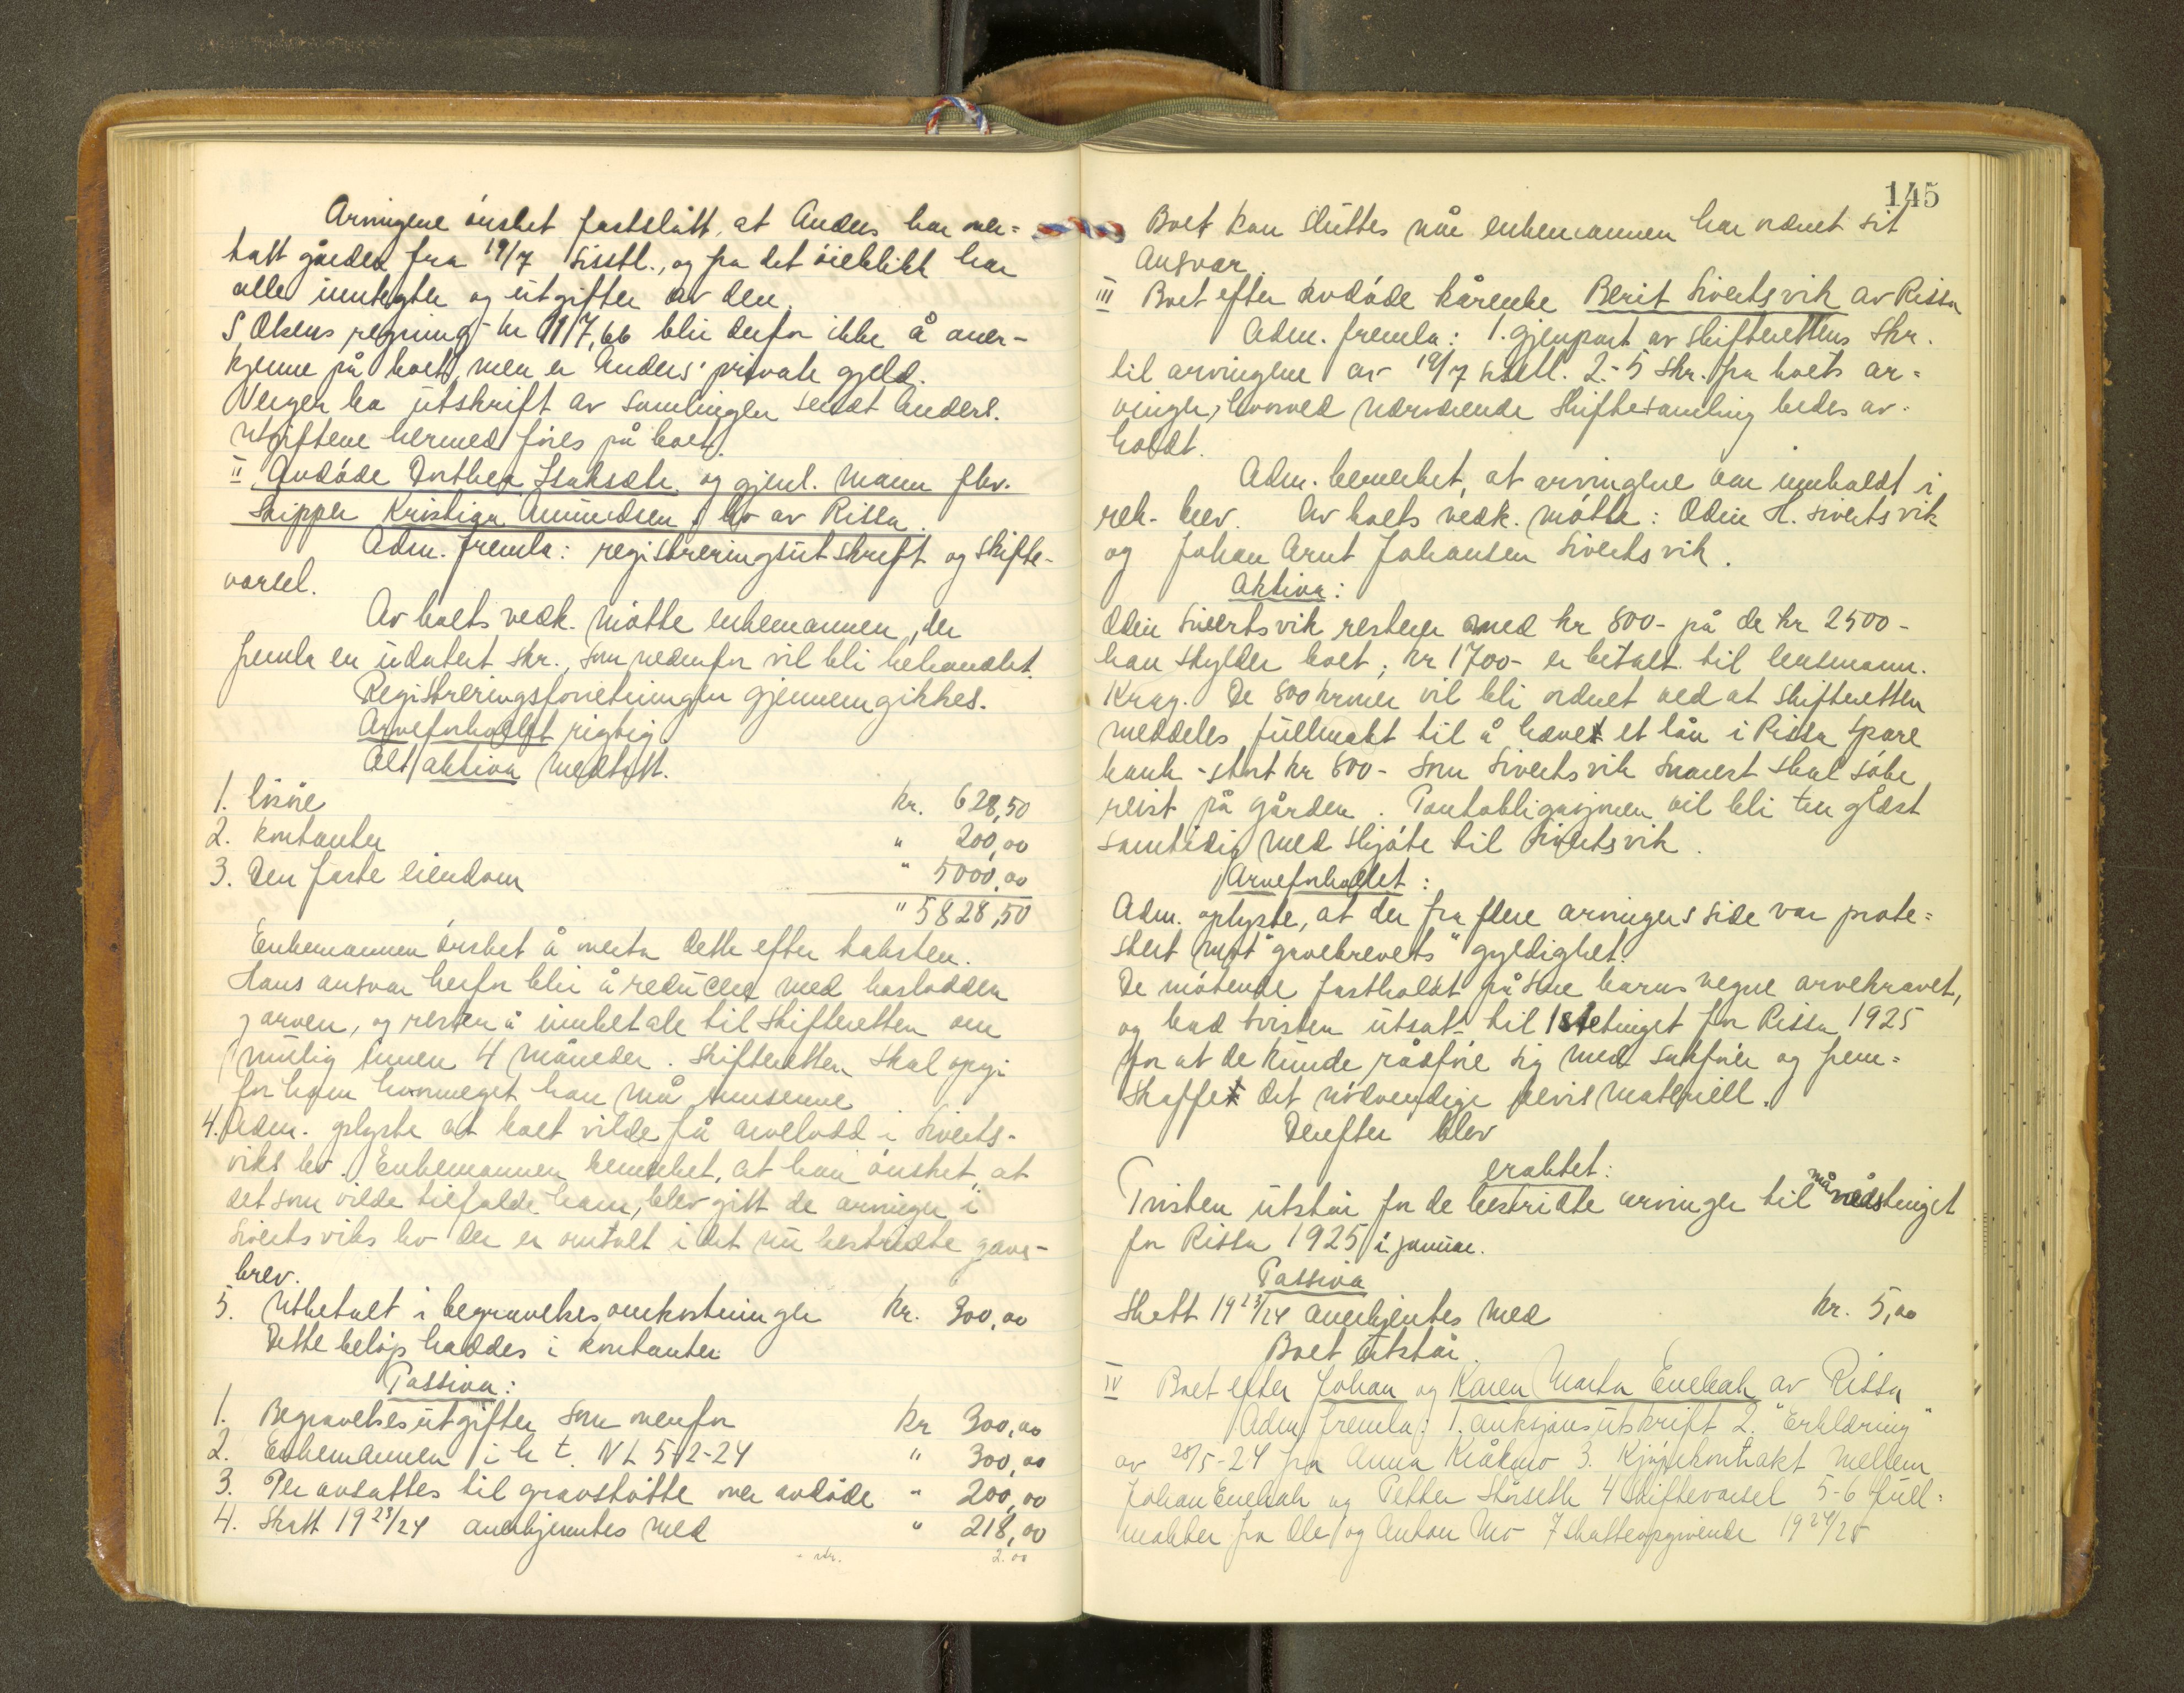 Arvingene ønsket fastslått, at Anders har over=
tatt gården fra 19/7 sisstl., og fra det øieblikk har
alle inntegter og utgifter av den.
S. Olsens regning kr 117,66 blir derfor ikke å aner-
kjenne på boet, men er Anders' private gjeld.
Verger ha utskrift av samlingen sendt Anders.
Utgiftene hermed føres på boet.
II Avdøde Dorthea og gjenl. mann fhv.
skipper Kristian Amundsen s bo av Rissa.
Adm. fremla: registreringsutskrift og skifte-
varsel.
Av boets vedk. møtte enkemannen, der
fremla en udatert skr., som nedenfor vil bli behandlet.
Registreringsforretningen gjennemgikkes.
Arveforholdet rigtig
Alt aktiva medtatt.
1. løsøre kr. 628,50
2. kontanter " 200,00
3. Den faste eiendom " 5000,00
" 5828,50
Enkemannen ønsket å overta dette efter taksten.
Hans ansvar herfor blir å reducere med boslodden
og arven, og resten å innbetale til skifteretten om
mulig innen 4 måneder. Skifteretten skal opgi
for ham hvormeget han må
4. Adm. oplyste at boet vilde få arvelodd i Siverts-
viks bo. Enkemannen bemerket, at han ønsket, at
det som vilde tilfalde ham, blev gitt de arvinger i
Sivertsviks bo der er omtalt i det nu bestridte gave-
brev.
5. Utbetalt i begravelsesomkostninger kr. 300,00
Dette beløp haddes i kontanter
Passiva:
1. Begravelsesutgifter som ovenfor kr 300,00
2. Enkemannen i h t. NL 5-2-24 " 300,00
3. Der avsattes til gravstøtte over avdøde " 200,00
4. Skatt 1923/24 anerkjentes med " 218,00
2.00
145
Boet kan sluttes når enkemannen har ordnet sit
ansvar.
III Boet efter avdøde kårenke Berit Sivertsvik av Rissa
Adm. fremla: 1. gjenpart av skifterettens skr.
til arvingene av 19/7 sisstl. 2.-5 skr. fra boets ar=
vinger, hvorved nærværende skiftesamling bedes av-
holdt.
Adm. bemerket, at arvingene var innkaldt i
rek. brev. Av boets vedk. møtte: Odin H. Sivertsvik
og Johan Arnt Johansen Sivertsvik.
Aktiva:
Odin Sivertsvik resterer med kr 800- på de kr 2500-
han skylder boet; kr 1700- er betalt til lensmann.
Krag. De 800 kroner vil bli ordnet ved at skifteretten
meddeles fullmakt til å hæve et lån i Rissa spare
bank - stort kr 800- som Sivertsvik snarest skal søke
reist på gården. Pantobligasjonen vil bli tinglæst
samtidig med skjøte til Sivertsvik.
Arveforholdet:
Adm. oplyste, at der fra flere arvingers side var prote=
stert mot "gavebrevets" gyldighet.
De møtende fastholdt på sine barns vegne arvekravet,
og bad tvisten utsatt til 1stetinget for Rissa 1925
for at de kunde rådføre sig med sakfører og frem=
skaffe det nødvendige bevismateriell.
Derefter blev
eraktet:
Tvisten utstår for de bestridte arvinger til månedstinget
for Rissa 1925 i januar.
Passiva
Skatt 1923/24 anerkjentes med kr. 5,00
Boet utstår.
IV Boet efter Johan og Karen Marta Enebak av Rissa
Adm. fremla: 1. auksjonsutskrift 2. "Erklæring"
av 28/5-24 fra Anna 3. Kjøpekontrakt mellem
Johan Enebak og Petter Størseth 4 skiftevarsel 5-6 full=
makter fra Ole og Anton Mo 7 skatteopgivende 1924/25